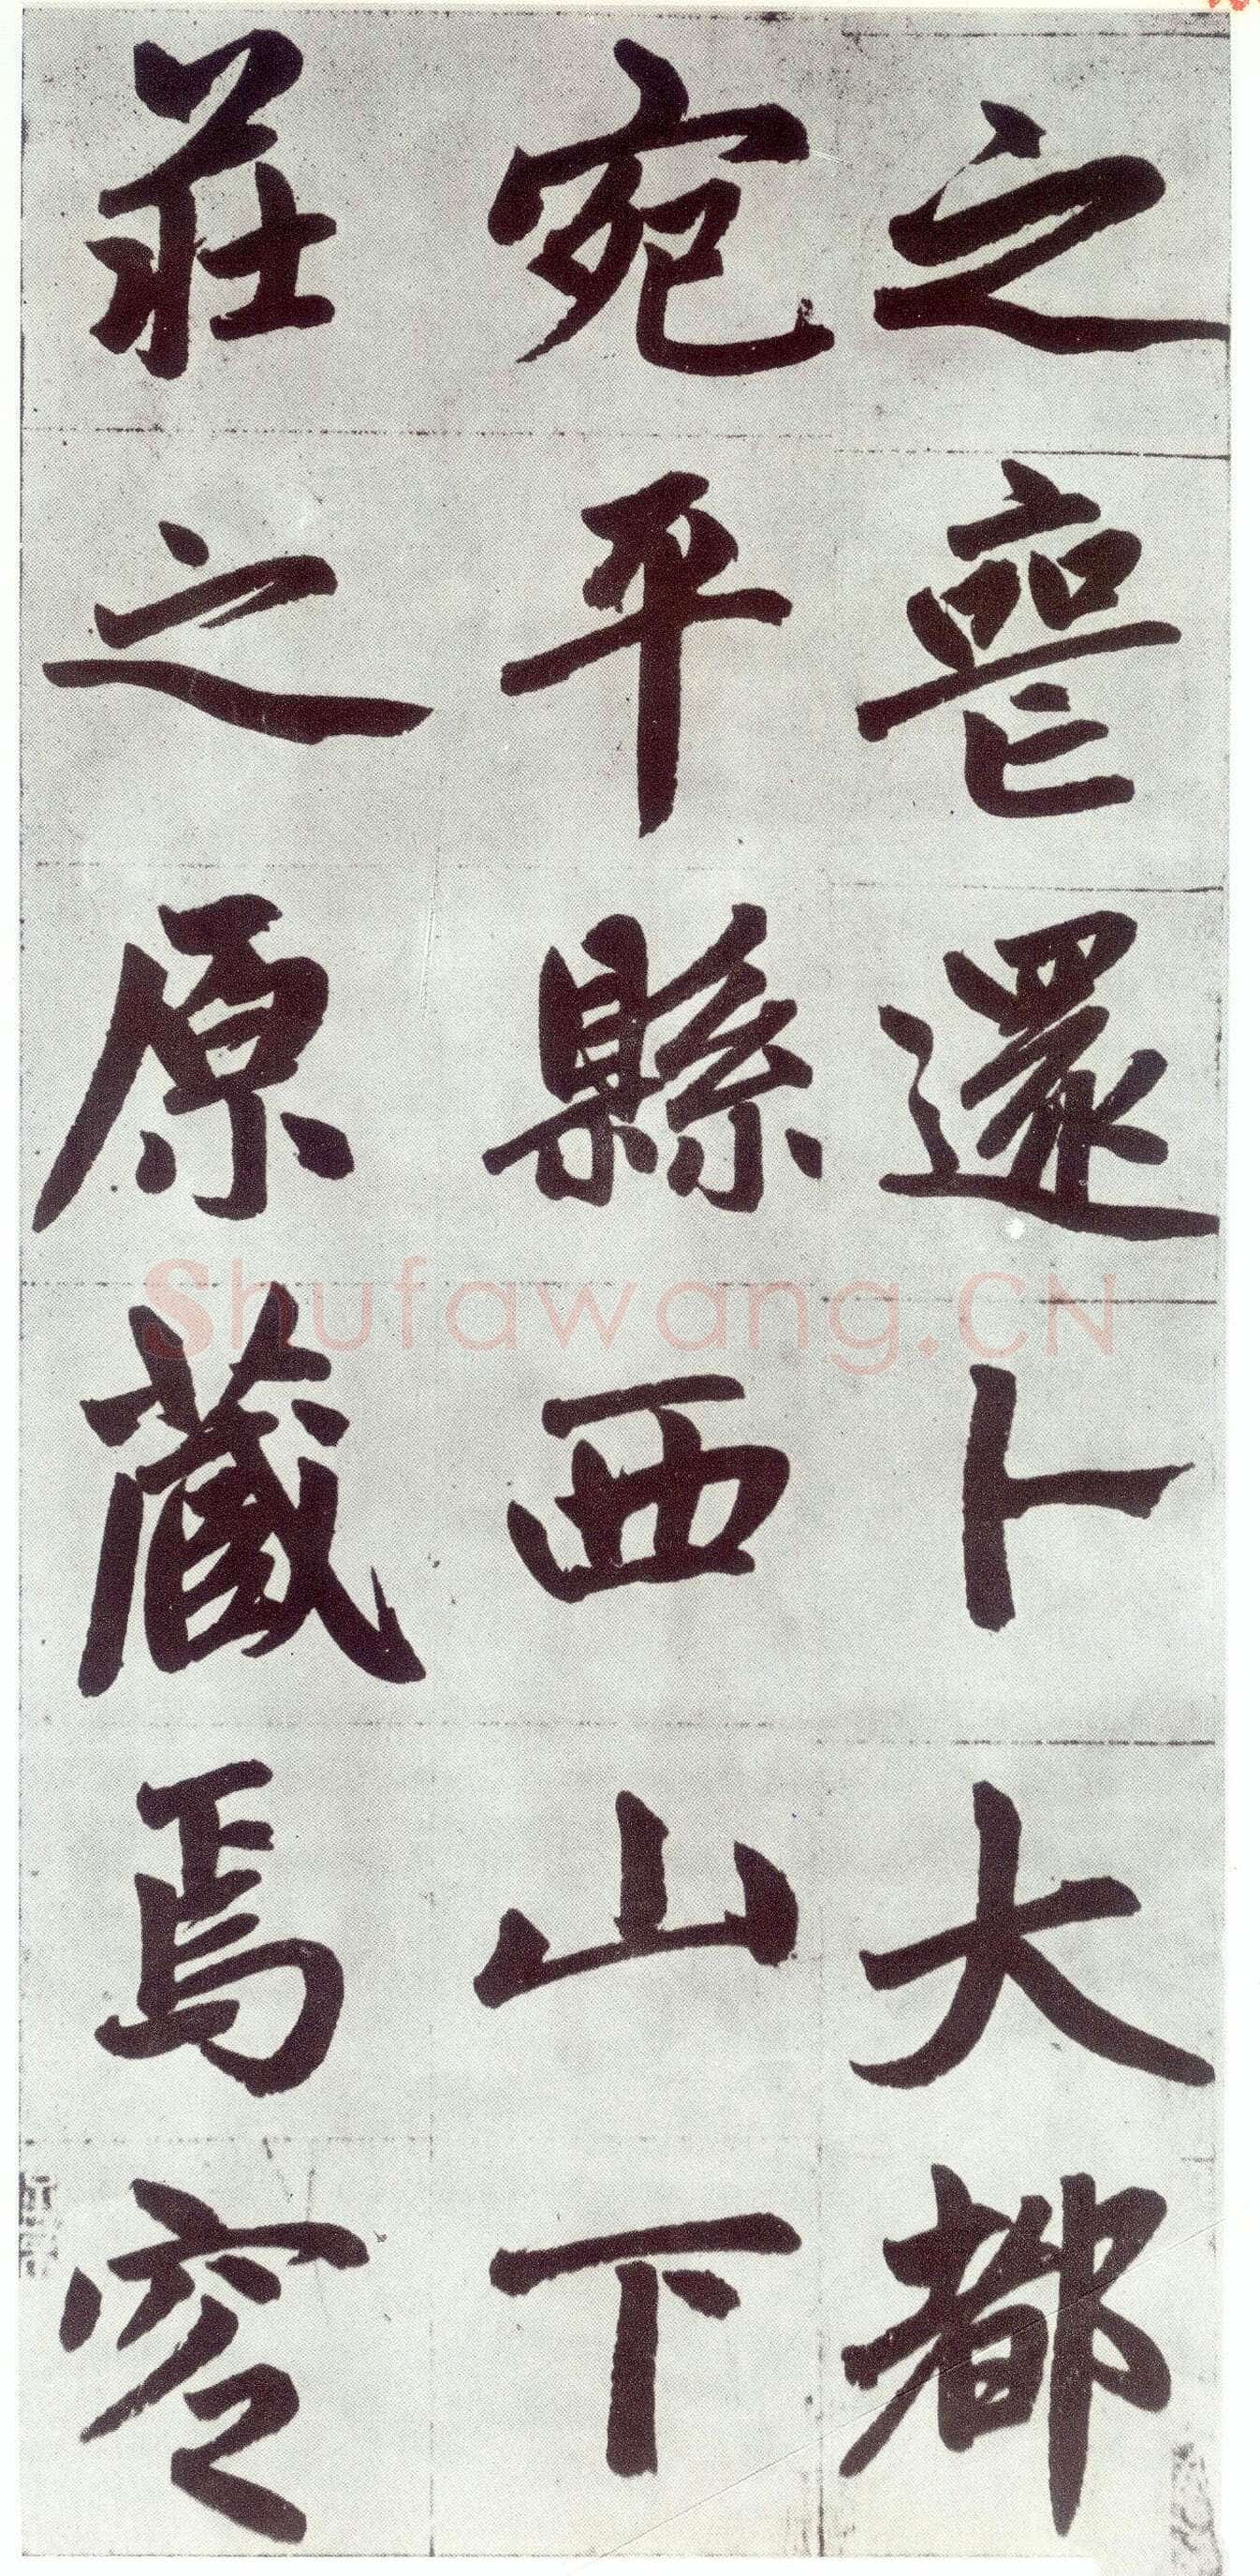 之喪還卜大都
宛平縣西山下
莊之原藏焉窆
Shufawang.CN